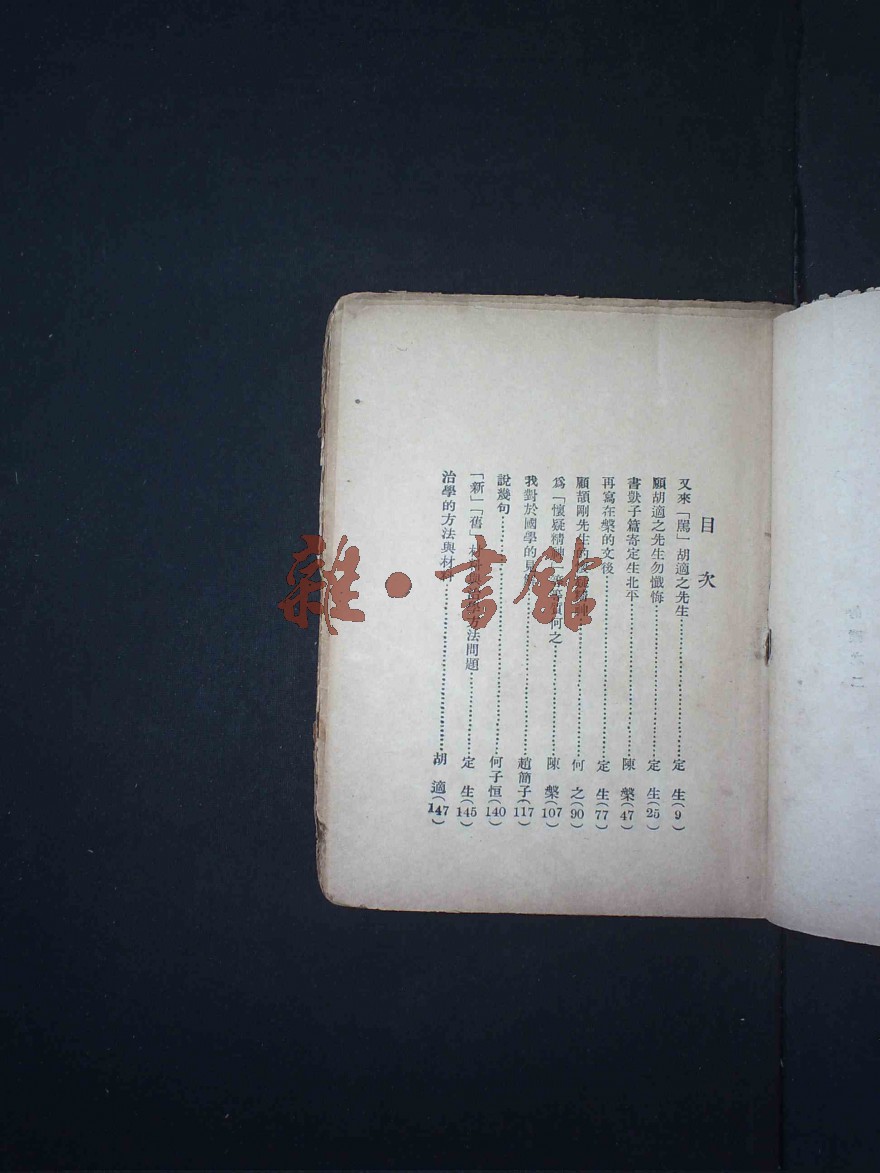 目次
又來「罵」胡適之先生…………定生(9)
願胡適之先生勿懺悔…………定生(25)
書獃子篇寄定生北平…………陳槃(47)
再寫在槃的文後…………定生(77)
顧頡剛先生的懷疑精神…………何之(90)
爲「懷疑精神」答何之…………陳槃(107)
我對於國學的見…………趙簡子(117)
說幾句…………何子恒(140)
「新」「舊」材料與治學方法問題…………定生(145)
治學的方法與材料…………胡適(147)
雜·書館